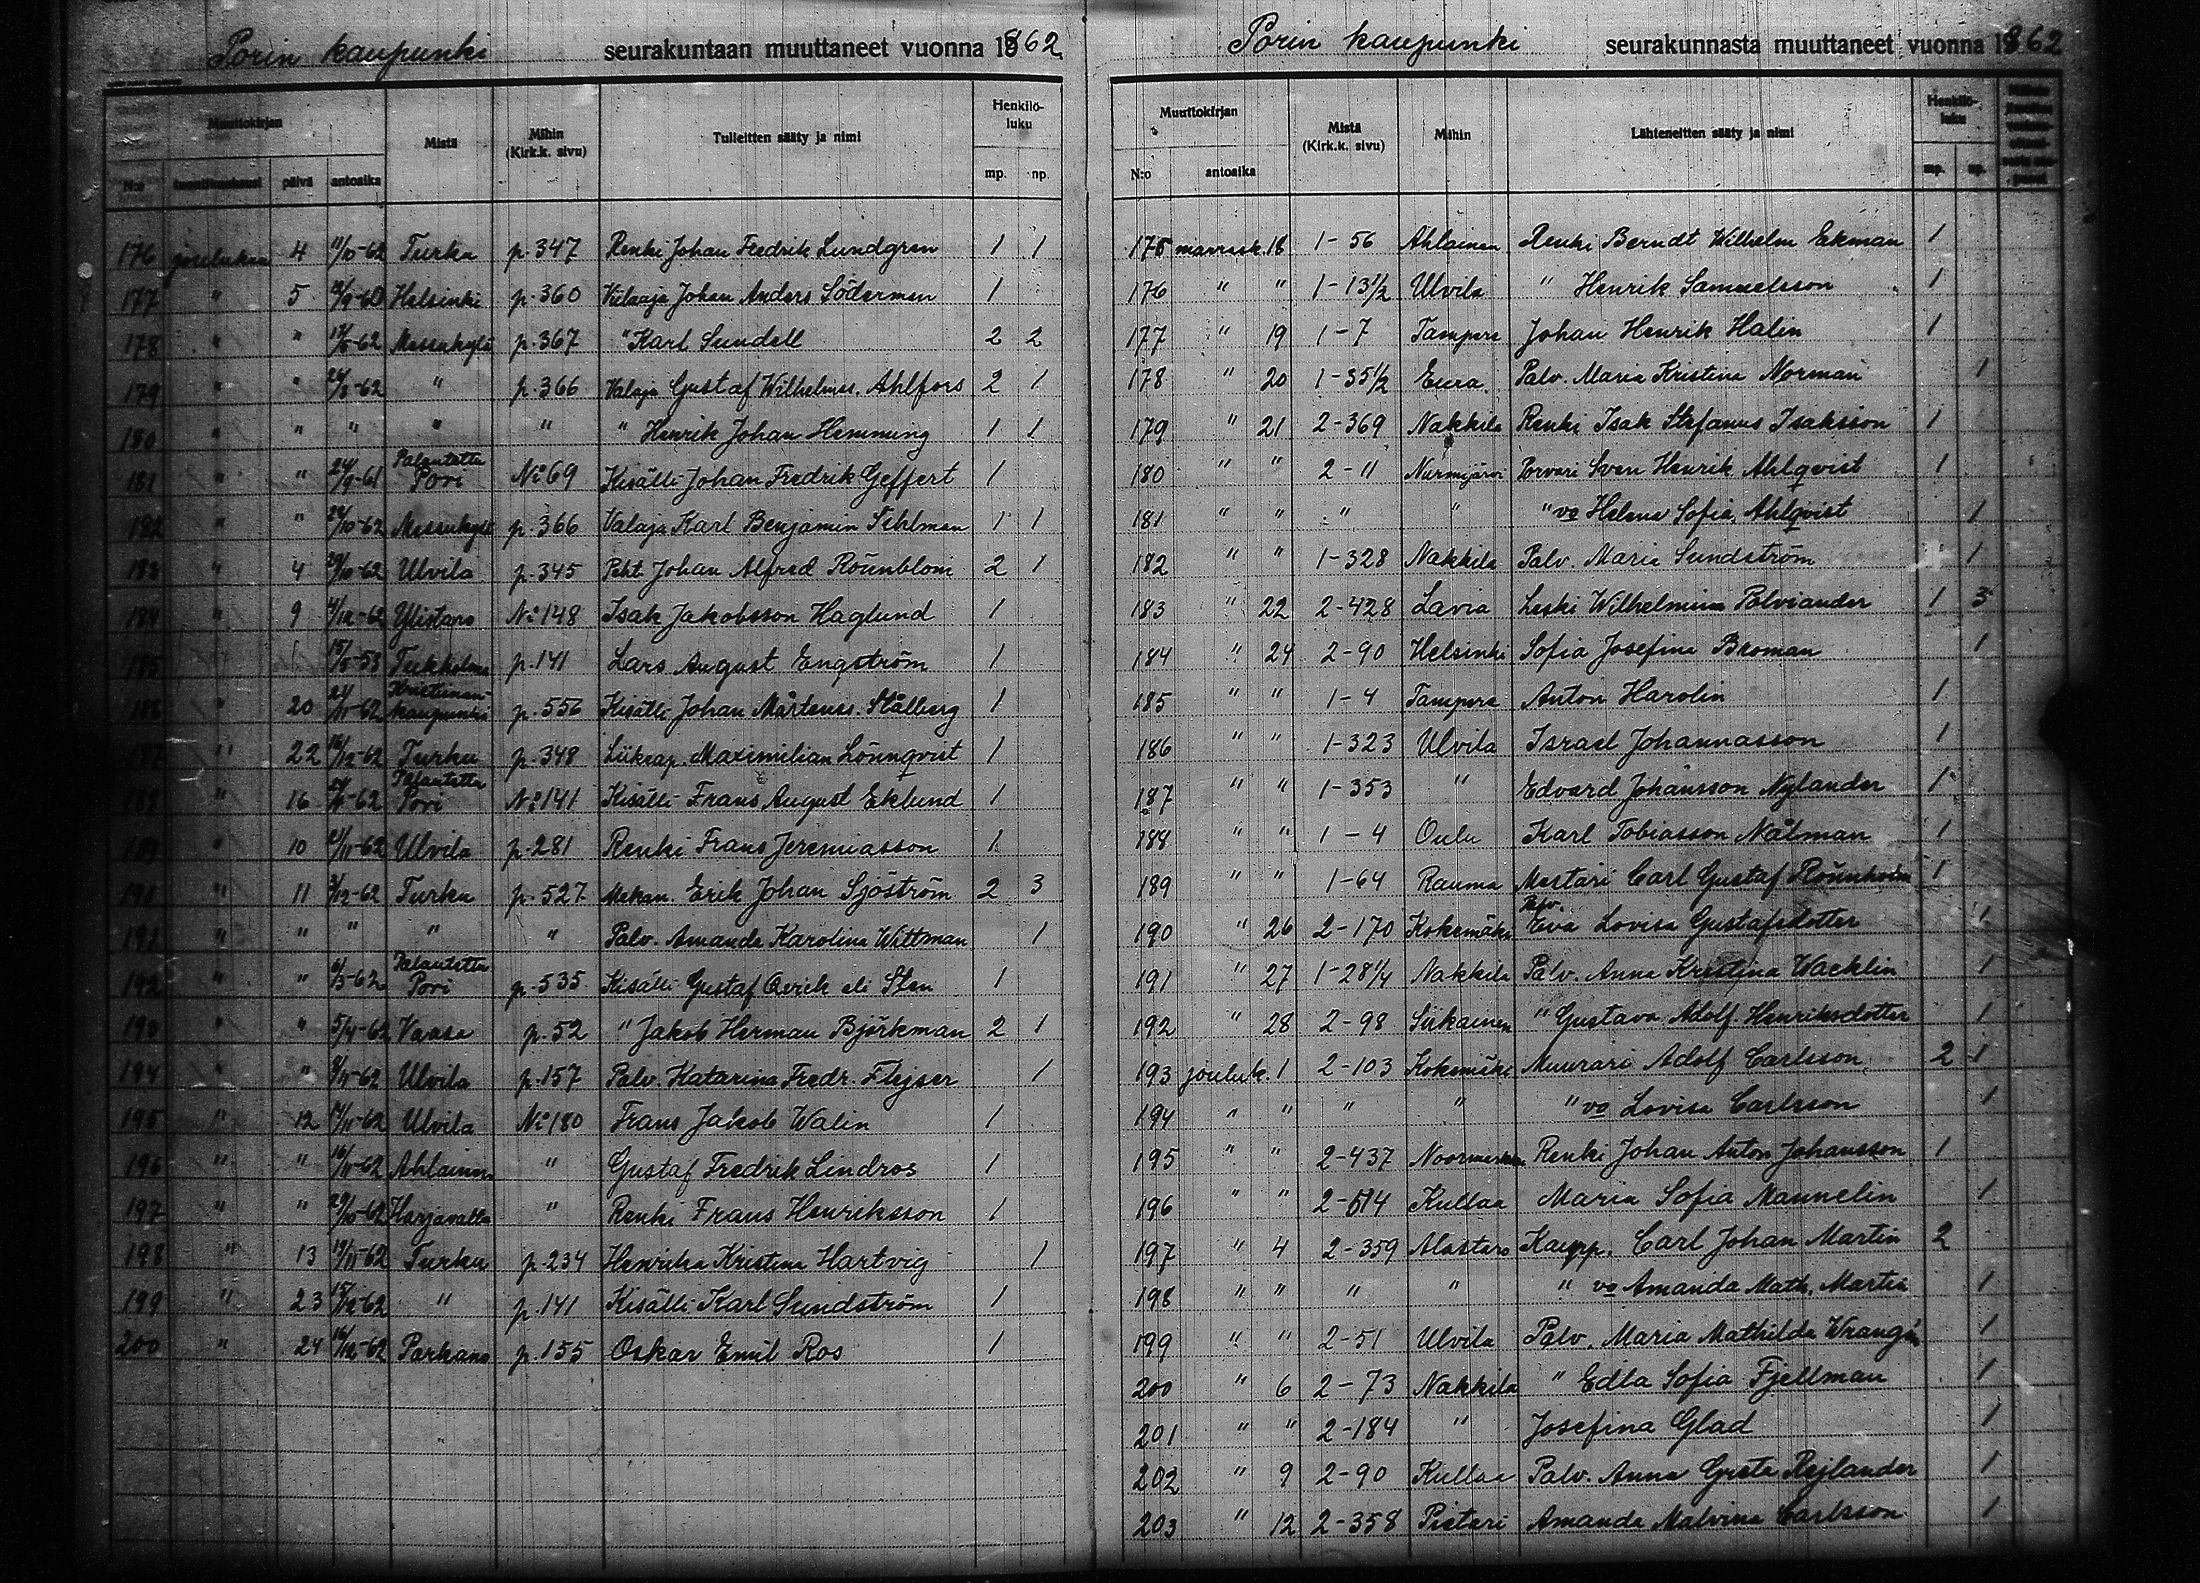 Porin kaupunki seurakuntaan muuttaneet vuonna 1862
Muuttokirjan Mistä Mihin (Kirk.k. sivu) Tulleitten sääty ja nimi Henkilö-luku
N:o päivä antoaika mp. np.
176 joulukuu 4 11/10-62 Turku p.347 Renki Johan Fredrik Lundgren 1 1
177 " 5 /9-60 Helsinki p.360 Viilaaja Johan Anders Söderman 1
178 " " -62 Messukylä p.367 " Karl Sundell 2 2
179 " " 24/8-62 " p.366 Valaja Gustaf Wilhelmss. Ahlfors 2 1
180 " " " " " " Henrik Johan Hemming 1 1
181 " " 24/9-61 Palautettu Pori No 69 Kisälli Johan Fredrik Geffert 1
182 " 24/10-62 Messukylä p.366 Valaja Karl Benjamin Sihlman 1 1
183 " 4 29/10-62 Ulvila p.345 Johan Alfred Rönnblom 2 1
184 " 9 4/12-62 Ylistaro No 148 Isak Jakobsson Haglund 1
185 15/8-53 Tukholma p.141 Lars August Engström 1
186 " 20 24/11-62 Kristiinankaupunki p.556 Kisälli Johan Mårtenss. Stålberg 1
187 " 22 16/12-62 Turku p.348 Liikeap. Maximilian Lönnqvist 1
188 " 16 -62 Palautettu Pori No 141 Kisälli Frans August Eklund 1
189 " 10 /11-62 Ulvila p.281 Renki Frans Jeremiasson 1
191 " 11 3/12-62 Turku p.527 Mekan. Erik Johan Sjöström 2 3
192 " " " " " Palv. Amanda Karolina Wittman 1
192 " " 6/3-62 Palautettu Pori p.535 Kisälli Gustaf Qvick eli Sten 1
193 " " 5/4-62 Vaasa p.52 " Jakob Herman Björkman 2 1
194 " /11-62 Ulvila p.157 Palv. Katarina Fredr. Flejser 1
195 " 12 17/11-62 Ulvila No 180 Frans Jakob Walin 1
196 " " 16/11-62 Ahlainen " Gustaf Fredrik Lindros 1
197 " " 29/10-62 Harjavalta " Renki Frans Henriksson 1
198 " 13 19/11-62 Turku p.234 Henrika Kristina Hartvig 1
199 " 23 15/12-62 " p.141 Kisälli Karl Sundström 1
200 " 24 16/12-62 Parkano p.155 Oskar Emil Ros 1
Porin kaupunki seurakunnasta muuttaneet vuonna 1862
Muuttokirjan Mistä (Kirk.k. sivu) Mihin Lähteneitten sääty ja nimi Henkilö-luku
N:o antoaika mp. np.
175 marrask. 18 1-56 Ahlainen Renki Berndt Wilhelm Ekman 1
176 " " 1-13 1/2 Ulvila " Henrik Samuelsson 1
177 " 19 1-7 Tampere Johan Henrik Halin 1
178 " 20 1-35 1/2 Eura Palv. Maria Kristina Norman 1
179 " 21 2-369 Nakkila Renki Isak Stefanus Isaksson 1
180 " " 2-11 Nurmijärvi Porvari Sven Henrik Ahlqvist 1
181 " " " " " vo Helena Sofia Ahlqvist 1
182 " " 1-328 Nakkila Palv. Maria Sundström 1
183 " 22 2-428 Lavia Leski Wilhelmina Polviander 1 3
184 " 24 2-90 Helsinki Sofia Josefina Broman 1
185 " " 1-4 Tampere Anton Harolin 1
186 " " 1-323 Ulvila Israel Johannasson 1
187 " " 1-353 " Edvard Johansson Nylander 1
188 " " 1-4 Oulu Karl Tobiasson Nålman 1
189 " " 1-64 Rauma Mestari Carl Gustaf Rönnholm 1
190 " 26 2-170 Kokemäki Palv. Eva Lovisa Gustafsdotter 1
191 " 27 1-28 1/4 Nakkila Palv. Anna Kristina Wacklin 1
192 " 28 2-98 Siikainen " Gustava Adolf. Henriksdotter 1
193 jouluk. 1 2-103 Kokemäki Muurari Adolf Carlsson 2 1
194 " " " " " vo Lovisa Carlsson 1
195 " " 2-437 Noormarkku Renki Johan Anton Johansson 1
196 " " 2-514 Kullaa Maria Sofia Mannelin 1
197 " 4 2-359 Alastaro Kaupp. Carl Johan Martin 2
198 " " " " " vo Amanda Math. Martin 1
199 " " 2-51 Ulvila Palv. Maria Mathilda Wrangén 1
200 " 6 2-73 Nakkila " Edla Sofia Fjellman 1
201 " " 2-184 " Josefina Glad 1
202 " 9 2-90 Kullaa Palv. Anna Greta Rejlander 1
203 " 12 2-358 Pietari Amanda Malvina Carlsson 1